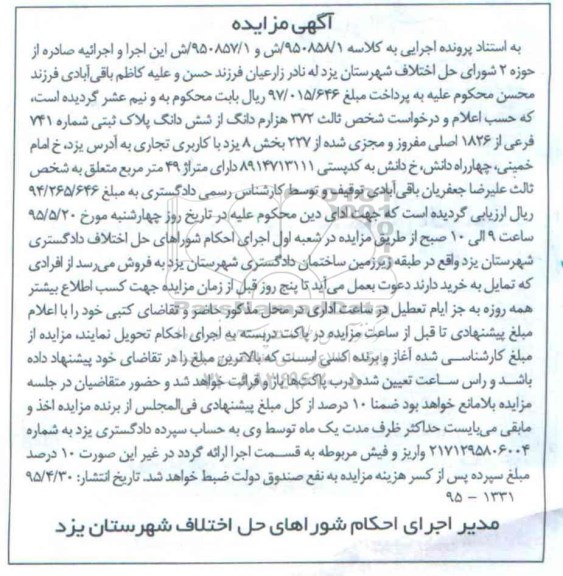 آگهی مزایده
به استناد پرونده اجرایی به کلاسه ۹۵۰۸۵۸/۱/ش و ۹۵۰۸۵۷/۱/ش این اجرا و اجرائیه صادره از
حوزه ۲ شورای حل اختلاف شهرستان یزد له نادر زارعیان فرزند حسن و علیه کاظم باقی‌آبادی فرزند
محسن محکوم علیه به پرداخت مبلغ ۹۷/۰۱۵/۶۴۶ ریال بابت محکوم به و نیم عشر گردیده است،
که حسب اعلام و درخواست شخص ثالث ۳۷۲ هزارم دانگ از شش دانگ پلاک ثبتی شماره ۷۴۱
فرعی از ۱۸۲۶ اصلی مفروز و مجزی شده از ۲۲۷ بخش ۸ یزد با کاربری تجاری به آدرس یزد، خ امام
خمینی، چهارراه دانش، خ دانش به کدپستی ۸۹۱۴۷۱۳۱۱۱ دارای متراژ ۴۹ متر مربع متعلق به شخص
ثالث علیرضا جعفریان باقی‌آبادی توقیف و توسط کارشناس رسمی دادگستری به مبلغ ۹۴/۲۶۵/۶۴۶
ریال ارزیابی گردیده است که جهت ادای دین محکوم علیه در تاریخ روز چهارشنبه مورخ ۹۵/۵/۲۰
ساعت ۹ الی ۱۰ صبح از طریق مزایده در شعبه اول اجرای احکام شوراهای حل اختلاف دادگستری
شهرستان یزد واقع در طبقه زیرزمین ساختمان دادگستری شهرستان یزد به فروش می‌رسد از افرادی
که تمایل به خرید دارند دعوت بعمل می‌آید تا پنج روز قبل از زمان مزایده جهت کسب اطلاع بیشتر
همه روزه به جز ایام تعطیل در ساعت اداری در محل مذکور حاضر و تقاضای کتبی خود را با اعلام
مبلغ پیشنهادی تا قبل از ساعت مزایده در پاکت دربسته به اجرای احکام تحویل نمایند، مزایده از
مبلغ کارشناسی شده آغاز و برنده کسی است که بالاترین مبلغ را در تقاضای خود پیشنهاد داده
باشد و راس ساعت تعیین شده درب پاکت‌ها باز و قرائت خواهد شد و حضور متقاضیان در جلسه
مزایده بلامانع خواهد بود ضمنا ۱۰ درصد از کل مبلغ پیشنهادی فی‌المجلس از برنده مزایده اخذ و
مابقی می‌بایست حداکثر ظرف مدت یک ماه توسط وی به حساب سپرده دادگستری یزد به شماره
۲۱۷۱۲۹۵۸۰۶۰۰۴ واریز و فیش مربوطه به قسمت اجرا ارائه گردد در غیر این صورت ۱۰ درصد
مبلغ سپرده پس از کسر هزینه مزایده به نفع صندوق دولت ضبط خواهد شد. تاریخ انتشار: ۹۵/۴/۳۰
۱۳۳۱ - ۹۵
مدیر اجرای احکام شوراهای حل اختلاف شهرستان یزد